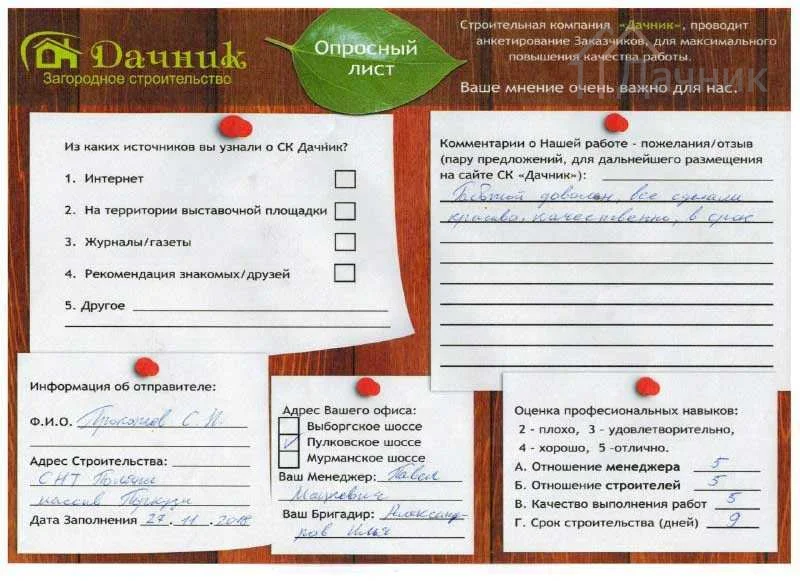 Дачник
Загородное строительство
Опросный
лист
Строительная компания «Дачник», проводит
анкетирование Заказчиков, для максимального
повышения качества работы.
Ваше мнение очень важно для нас.
Дачник
Из каких источников вы узнали о СК Дачник?
1. Интернет
2. На территории выставочной площадки
3. Журналы/газеты
4. Рекомендация знакомых/друзей
5. Другое
Комментарии о Нашей работе - пожелания/отзыв
(пару предложений, для дальнейшего размещения
на сайте СК «Дачник»):
доволен, все сделали
красиво, качественно, в срок
Информация об отправителе:
Ф.И.О.
Адрес Строительства:
СНТ
массив
Дата Заполнения 27.11.2018
Адрес Вашего офиса:
Выборгское шоссе
Пулковское шоссе
Мурманское шоссе
Ваш Менеджер: Павел
Ваш Бригадир: Александ-
ров Илья
Оценка професиональных навыков:
2 - плохо, 3 - удовлетворительно,
4 - хорошо, 5 -отлично.
А. Отношение менеджера 5
Б. Отношение строителей 5
В. Качество выполнения работ 5
Г. Срок строительства (дней) 9